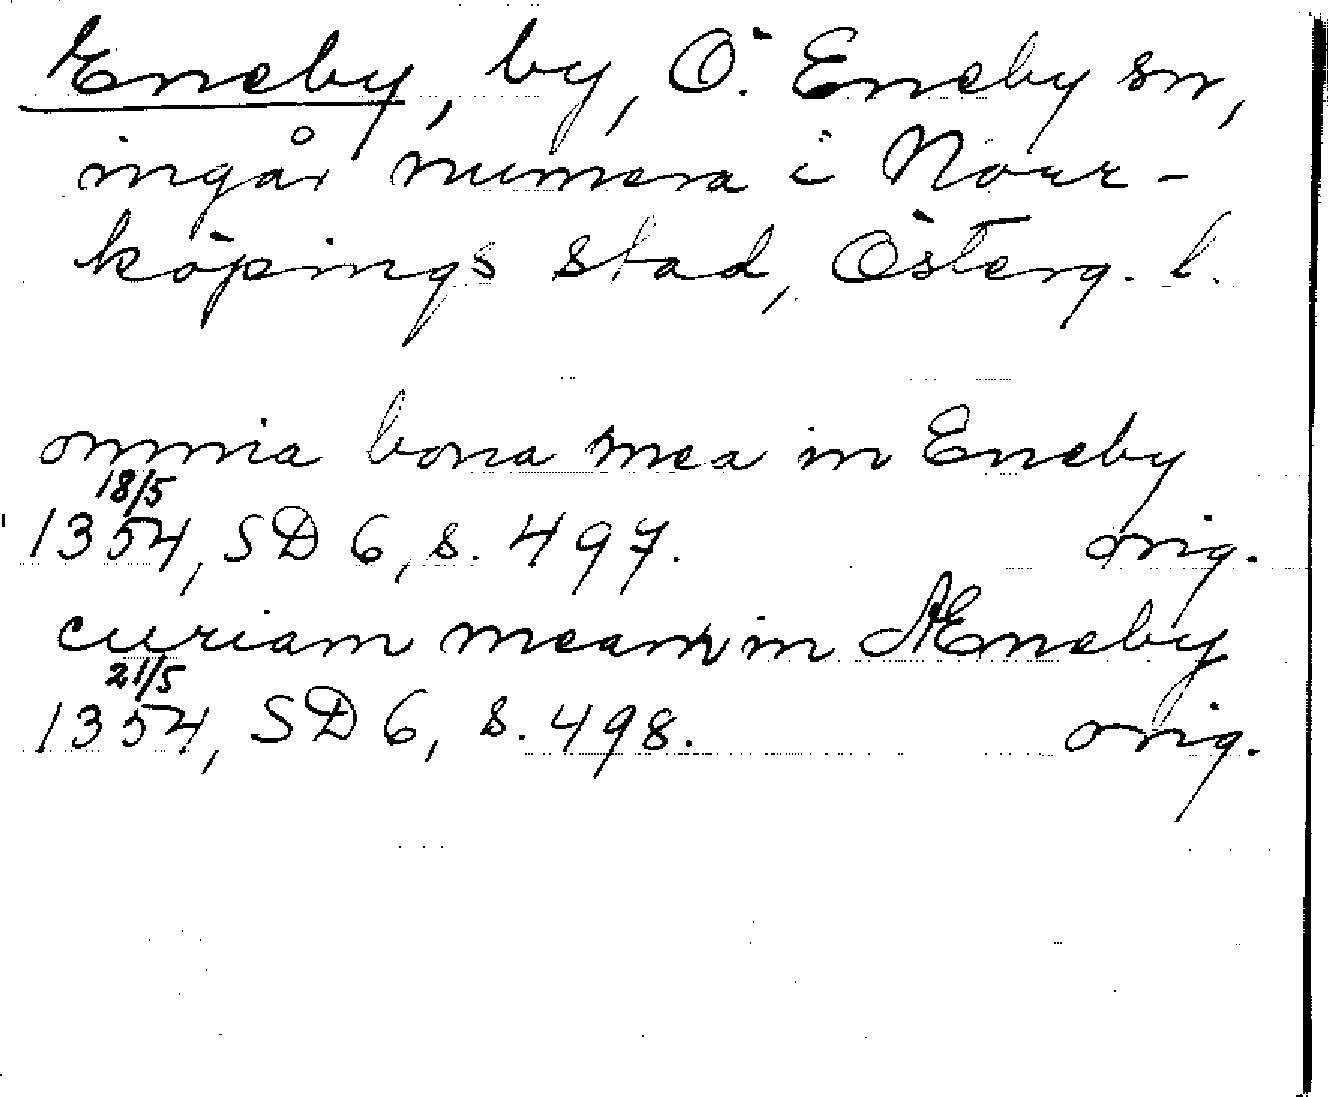 Eneby, by, Ö. Eneby sn,
ingår numera i Norr-
köpings stad, Österg. l.
omnia bona mea in Eneby
18/5
1354, SD 6, s. 497. orig.
curiam meam in Æneby
21/5
1354, SD 6, s. 498. orig.